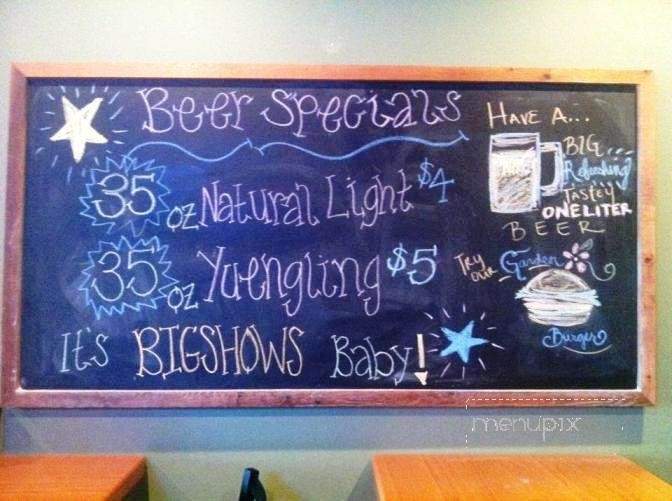 Beer Specials
35 oz Natural Light $4
35 oz Yuengling $5
It's BIGSHOWS Baby!
HAVE A...
BIG...
Refreshing
TASTEY
ONE LITER
BEER
TRY OUR Garden
Burger
menupix